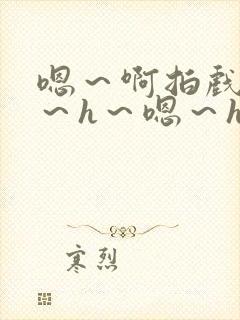 嗯～啊拍戏
～h～嗯～h
寒烈